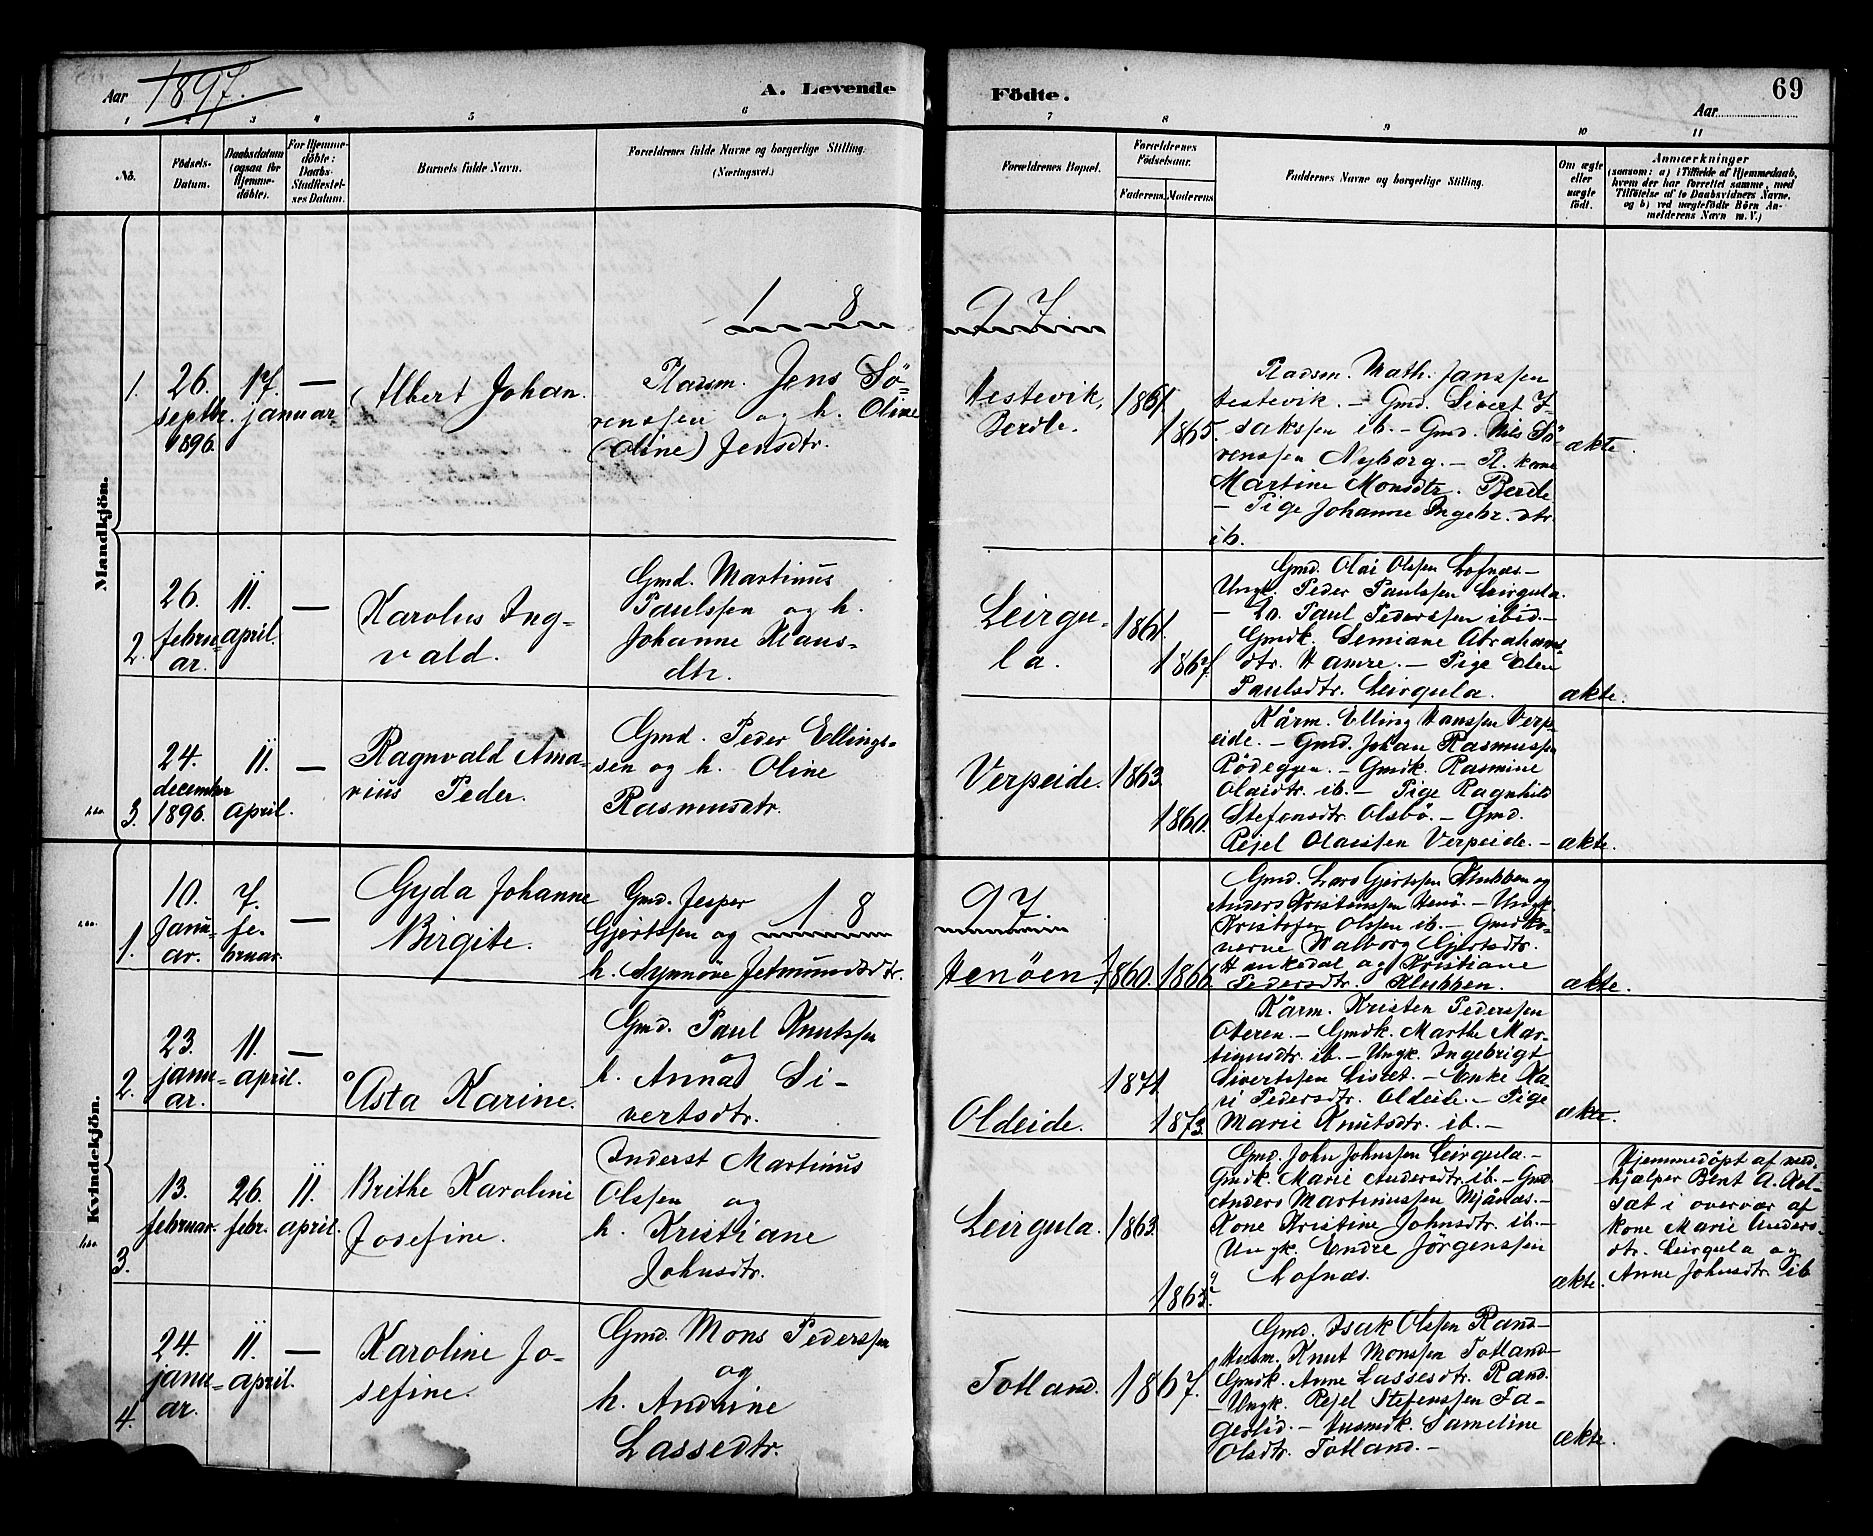 Aar 1897.
A. Levende
Födte.
69
Aar
1 2 3 4 5 6 7 8 9 10 11
No.
Födsels-
Datum.
Daabsdatum
(ogsaa for
Hjemme-
döbte).
For Hjemme-
döbte:
Daabs-
Stadfæstel-
ses Datum.
Barnets fulde Navn.
Forældrenes fulde Navne og borgerlige Stilling.
(Næringsvei.)
Forældrenes Bopæl.
Forældrenes
Födselsaar.
Faderens.
Moderens.
Faddernes Navne og borgerlige Stilling.
Om ægte
eller
uægte
födt.
Anmærkninger
(saasom: a) i Tilfælde af Hjemmedaab,
hvem der har forrettet samme, med
Tilföielse af to Daabsvidners Navne,
og b) ved uægtefödte Börn An-
melderens Navn m. V.)
Mandkjön.
1 8 9 7
1.
26.
septbr.
1896.
17.
januar
—
Albert Johan.
Pladsm. Jens Sö-
renssen og h. Oline
(Oline) Jensdtr.
Hestevik,
Berdle.
1861.
1865.
Pladsm. Math. Janssen
Hestevik. — Gmd. Sivert I-
saksen ib. — Gmd. Nils Sö-
renssen Nyborg. — Pl. kone
Martine Monsdtr. Berdle
— Pige Johanne Ingebr. dtr.
ib.
ækte.
2.
26.
febru-
ar.
11.
april.
—
Karolus Ing-
vald.
Gmd. Martinus
Paulssen og h.
Johanne Klaus-
dtr.
Leirgu-
la.
1861.
1867.
Gmd. Olai Olssen Lofnæs —
Ungk. Peder Paulssen Leirgula.
— Do. Paul Pederssen ibid. —
Gmdk. Semiane Abrahams-
dtr. Hamre. — Pige Elen
Paulsdtr. Leirgula.
ækte.
3.
24.
december
1896.
11.
april.
—
Ragnvald Ama-
rius Peder.
Gmd. Peder Ellings-
sen og h. Oline
Rasmusdtr.
Verpeide.
1863.
1860.
Kårm. Elling Hanssen Verp-
eide. — Gmd. Johan Rasmussen
Rödeggen. — Gmdk. Rasmine
Olaidtr. ib. — Pige Ragnhild
Stefansdtr. Olsbö. — Gmd.
Rejel Olaissen Verpeide. —
ækte.
Kvindekjön.
1 8 9 7
1.
10.
Janu-
ar.
7.
fe-
bruar.
—
Gyda Johanne
Birgite.
Gmd. Jesper
Gjertssen og
h. Synnöve Jetmundsdtr.
Henöen.
1860.
1866.
Gmd. Lars Gjertssen Klubben og
Anders Kristenssen Henö. — Ungk.
Kristofer Olssen ib. — Gmdko-
nerne Walborg Gjertsdtr.
Haukedal og Kristiane
Pedersdtr. Klubben.
ækte.
2.
23.
janu-
ar.
11.
april.
—
Åsta Karine.
Gmd. Paul Knutssen
og
h. Anna Si-
vertsdtr.
Oldeide.
1871.
1873.
Kårm. Kristen Pederssen
Oteren. — Gmdk. Marthe Mar-
tinusdtr. ib. — Ungk. Ingebrigt
Sivertssen Liset. — Enke Ka-
ri Pedersdtr. Oldeide. — Pige
Marie Knutsdtr. ib. —
ækte.
3.
13.
februar.
26.
febr.
11.
april.
Brithe Karoline
Josefine.
Inderst Martinus
Olssen og
h. Kristiane
Johnsdtr.
Leirgula.
1863.
Gmd. John Johnssen Leirgula. —
Gmdk. Marie Andersdtr. ib. — Gmd.
Anders Martinussen Mjånæs. —
Kone Kristine Johnsdtr. ib. —
Ungk. Endre Jörgenssen
Lofnæs.
ækte.
Hjemmedöpt af med-
hjælper Bent A.
i overvær af
kone Marie Anders-
dtr. Leirgula og
Anne Johnsdtr. ib
4.
24.
janu-
ar.
11.
april.
—
Karoline Jo-
sefine.
Gmd. Mons Pederssen
og
h. Andrine
Lassedtr.
Totland.
1867.
Gmd. Isak Olssen Rand —
Husm. Knut Monssen Totland —
Gmdk. Anne Lassesdtr. Rand.
— Ungk. Rejel Stefenssen Fa-
gerlid. — Husmdk. Sameline
Olsdtr. Totland. —
ækte.